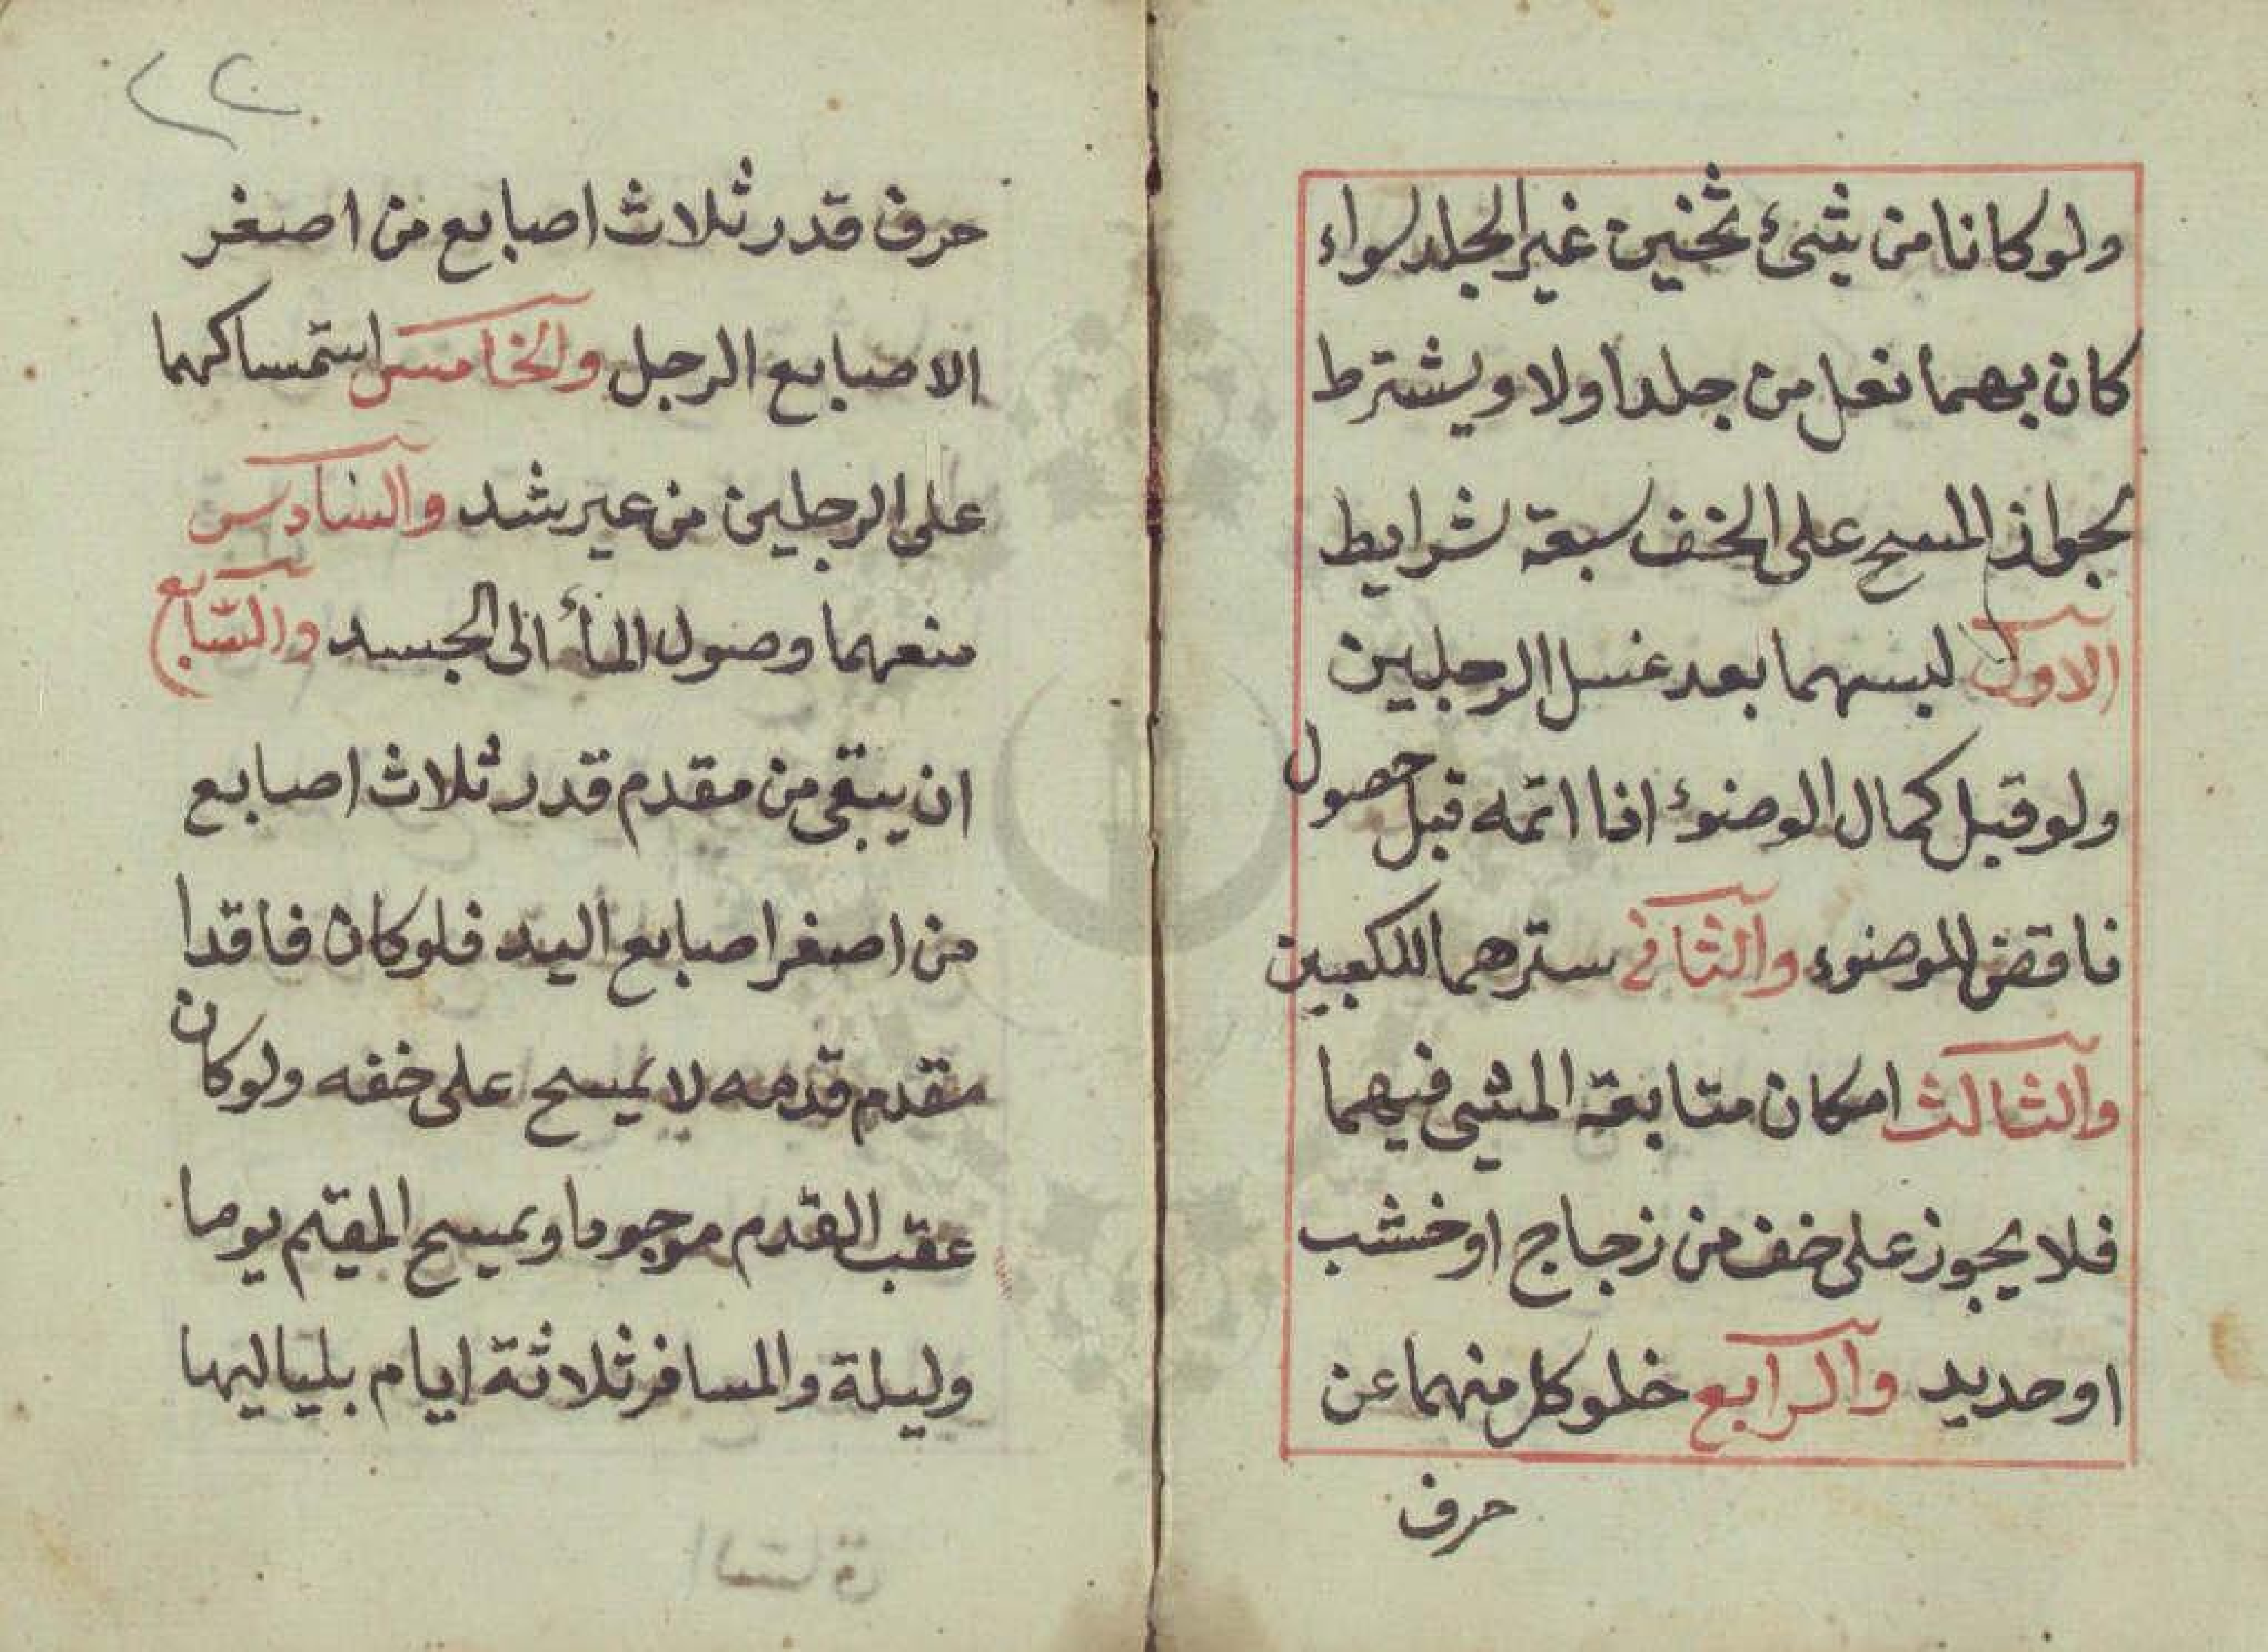 ولو كانا من شئ ثخنين غير الجلد سواء
كان بهما نعل من جلد اولا ويشترط
لجواز المسح على الخف سبعة شرايط
الاول لبسهما بعد غسل الرجلين
ولو قبل كمال الوضوئ اذا اتمه قبل حصول
ناقض الموضوء والثانى سترهما للكعبين
والثالث امكان متابعة المشى فيهما
فلا يجوز على خف من زجاج او خشب
او حديد والرابع خلو كل منهما عن
حرف
٢٢
حرف قدر ثلاث اصابع من اصغر
الاصابع الرجل والخامس استمساكهما
على الرجلين من عير شد والسادس
منعهما وصول المأ الى الجسد والسابع
ان يبقى من مقدم قدر ثلاث اصابع
من اصغر اصابع اليد فلو كان فاقدا
مقدم قدمه لا يمسح على خفه ولو كان
عقب القدم موجودا ويمسح المقيم يوما
وليلة والمسافر ثلاثة ايام بلياليها